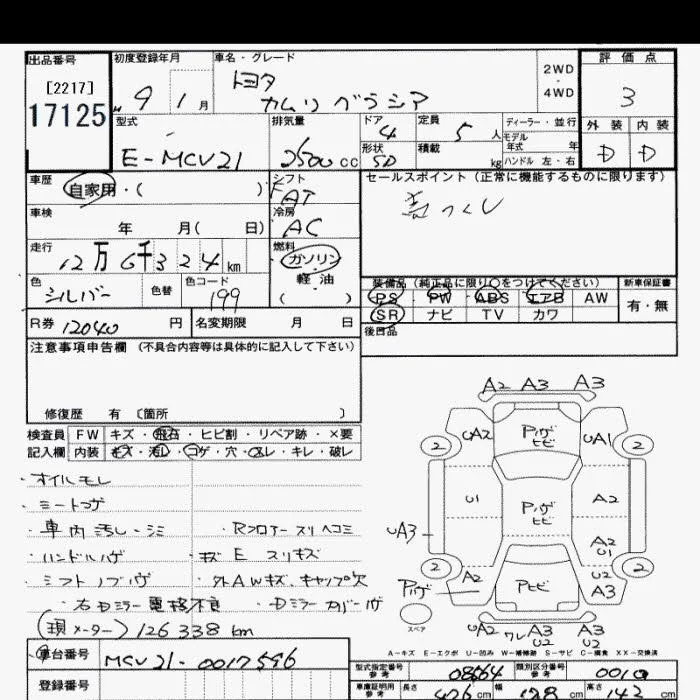 出品番号 初度登録年月 車名・グレード 2WD・4WD 評価点
[2217]
17125
9年 1月 トヨタ カムリグラシア 3
型式 排気量 ドア 定員 ディーラー・並行 外装 内装
E-MCV21 2500cc 4 5人 モデル年式 年 D D
形状 5D 積載 kg ハンドル 左・右
車歴 自家用・( ) シフト セールスポイント(正常に機能するものに限ります)
FAT
車検 年 月( 日) 冷房 AC
走行 12万6千324km 燃料 ガソリン・軽油( )
色 シルバー 色替 色コード 199
装備品(純正品に限り○をつけてください) 新車保証書
PS PW ABS エアB AW 有・無
SR ナビ TV カワ
R券 12040円 名変期限 月 日 後日品
注意事項申告欄 (不具合内容等は具体的に記入して下さい)
修復歴 有 〔箇所 〕
検査員 FW キズ・飛石・ヒビ割・リペア跡・×要
記入欄 内装 キズ・汚レ・コゲ・穴・スレ・キレ・破レ
・オイルモレ
・シートコゲ
・車内汚レ・シミ ・Rフロアースリヘコミ
・ハンドルハゲ ・キズ E スリキズ
・シフトノブハゲ ・外AWキズ、キャップ欠
・右Dミラー電格不良 ・Dミラーカバーハゲ
(現メーター)126338km
A2 A3 A3
UA2 Pハゲ ヒビ UA1
2 2
U1 Pハゲ ヒビ A2
UA3 A2 U1
2 A2 U2 A3 2
Pハゲ Pヒビ
スペア UA2 ワレ A3 U2 A3 U2
A-キズ E-エクボ U-凹み W-補修跡 S-サビ C-腐食 XX-交換済
車台番号 MCV21-0017596
登録番号
型式指定番号 参考 08564 類別区分番号 参考 0010
車庫証明用 参考 長さ 476cm 幅 178cm 高さ 142cm